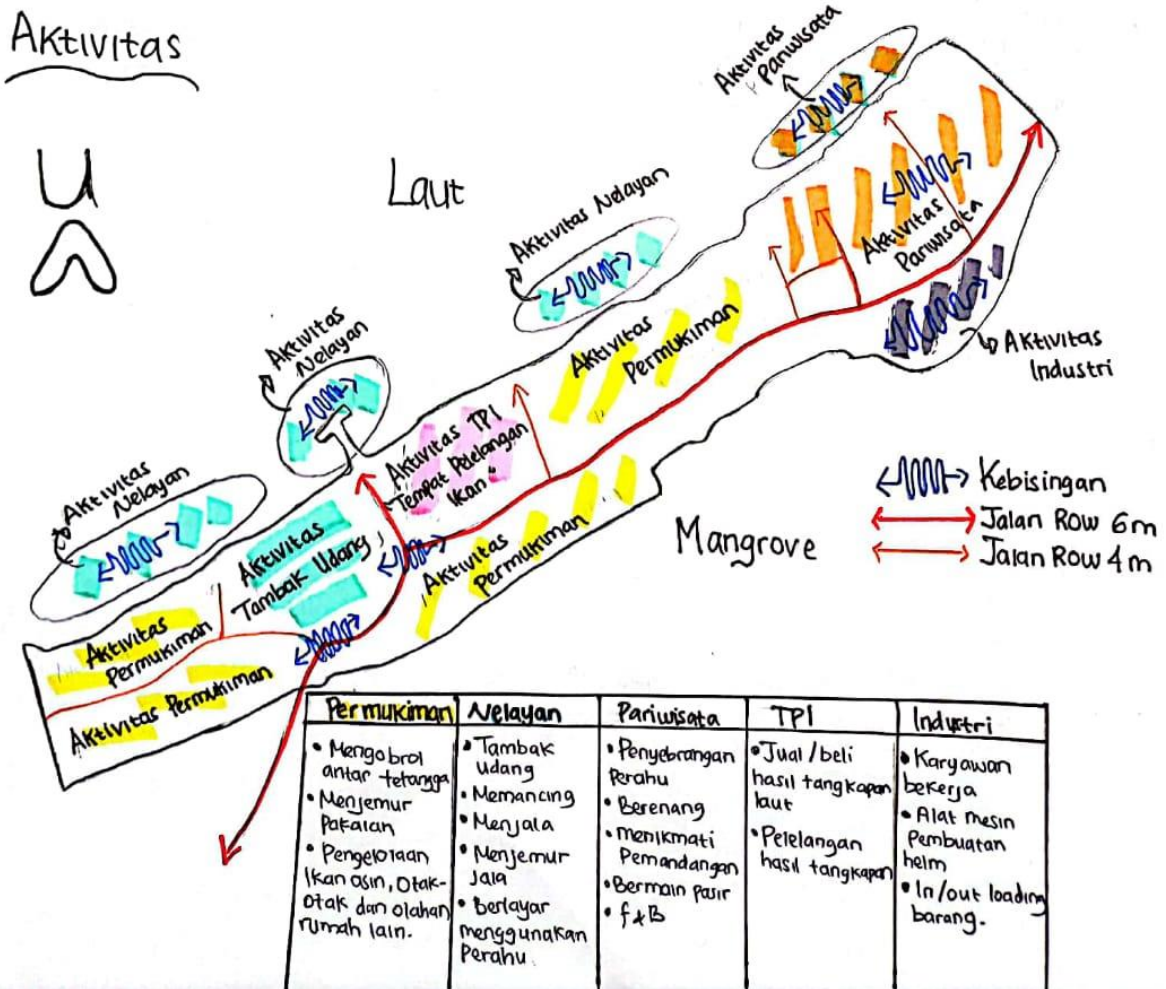 Aktivitas
U
Laut
Aktivitas
Pariwisata
Aktivitas Nelayan
Aktivitas
Nelayan
Aktivitas
Nelayan
Aktivitas
Pariwisata
Aktivitas
Permukiman
Aktivitas TPI
"Tempat Pelelangan
Ikan"
Aktivitas
Tambak Udang
Aktivitas
Permukiman
Aktivitas
Permukiman
Aktivitas Permukiman
Aktivitas
Industri
Mangrove
Kebisingan
Jalan Row 6m
Jalan Row 4m
Permukiman
• Mengobrol
antar tetangga
• Menjemur
Pakaian
• Pengelolaan
Ikan asin, Otak-
otak dan olahan
rumah lain.
Nelayan
• Tambak
udang
• Memancing
• Menjala
• Menjemur
Jala
• Berlayar
menggunakan
Perahu
Pariwisata
• Penyebrangan
Perahu
• Berenang
• menikmati
Pemandangan
• Bermain pasir
• f&B
TPI
• Jual/beli
hasil tangkapan
laut
• Pelelangan
hasil tangkapan
Industri
• Karyawan
bekerja
• Alat mesin
Pembuatan
helm
• In/out loading
barang.